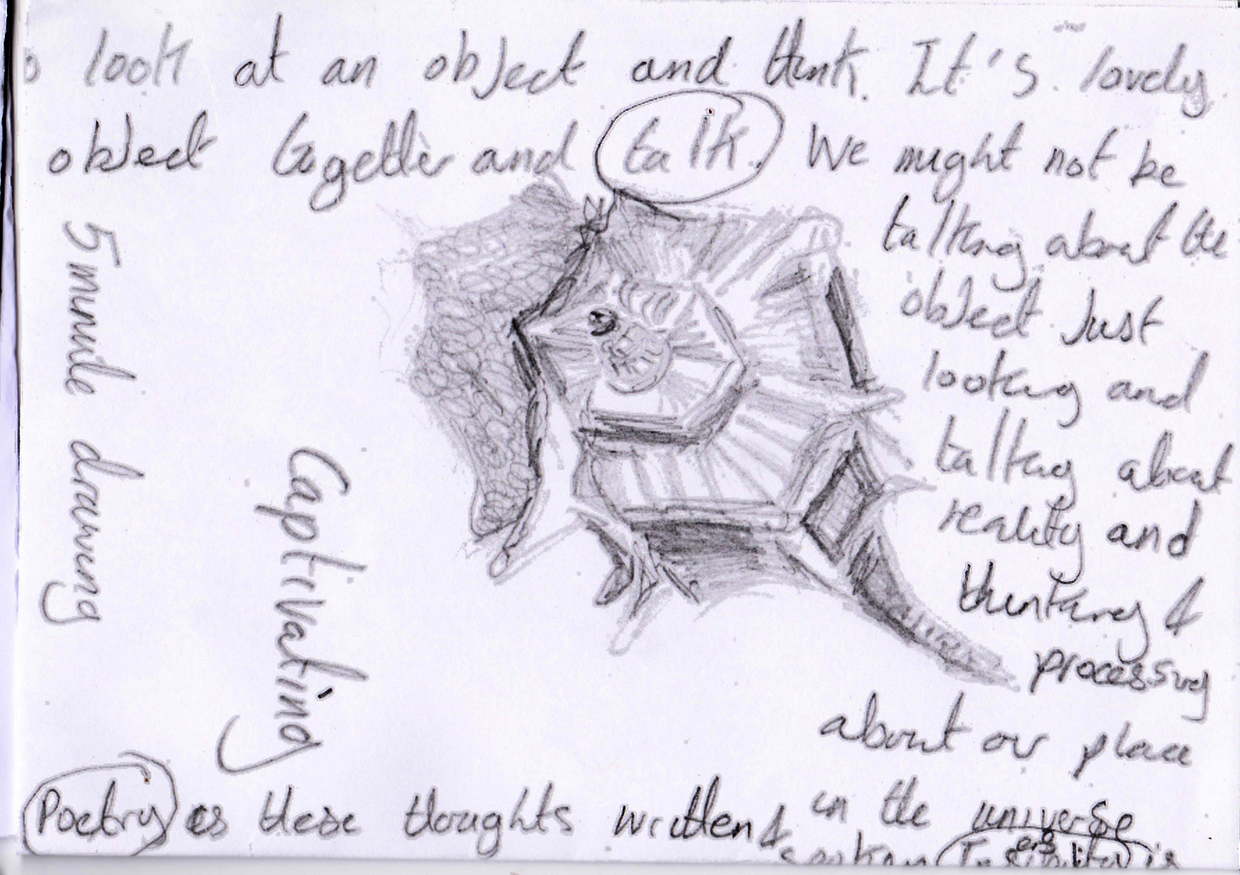 look at an object and think. It's lovely
object together and talk. We might not be
talking about the
object just
looking and
talking about
reality and
thinking &
processing
about our place
in the universe
Poetry is these thoughts written &
spoken is
5 minute drawing
Captivating